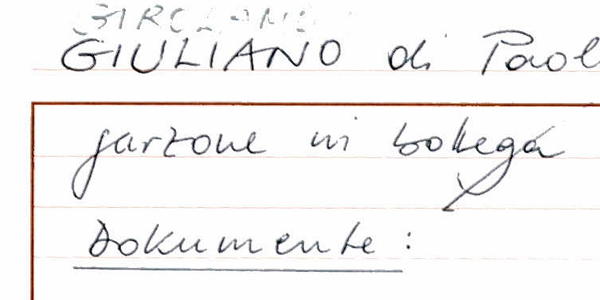 GIULIANO di Paol
garzone in bottega
Dokumente: